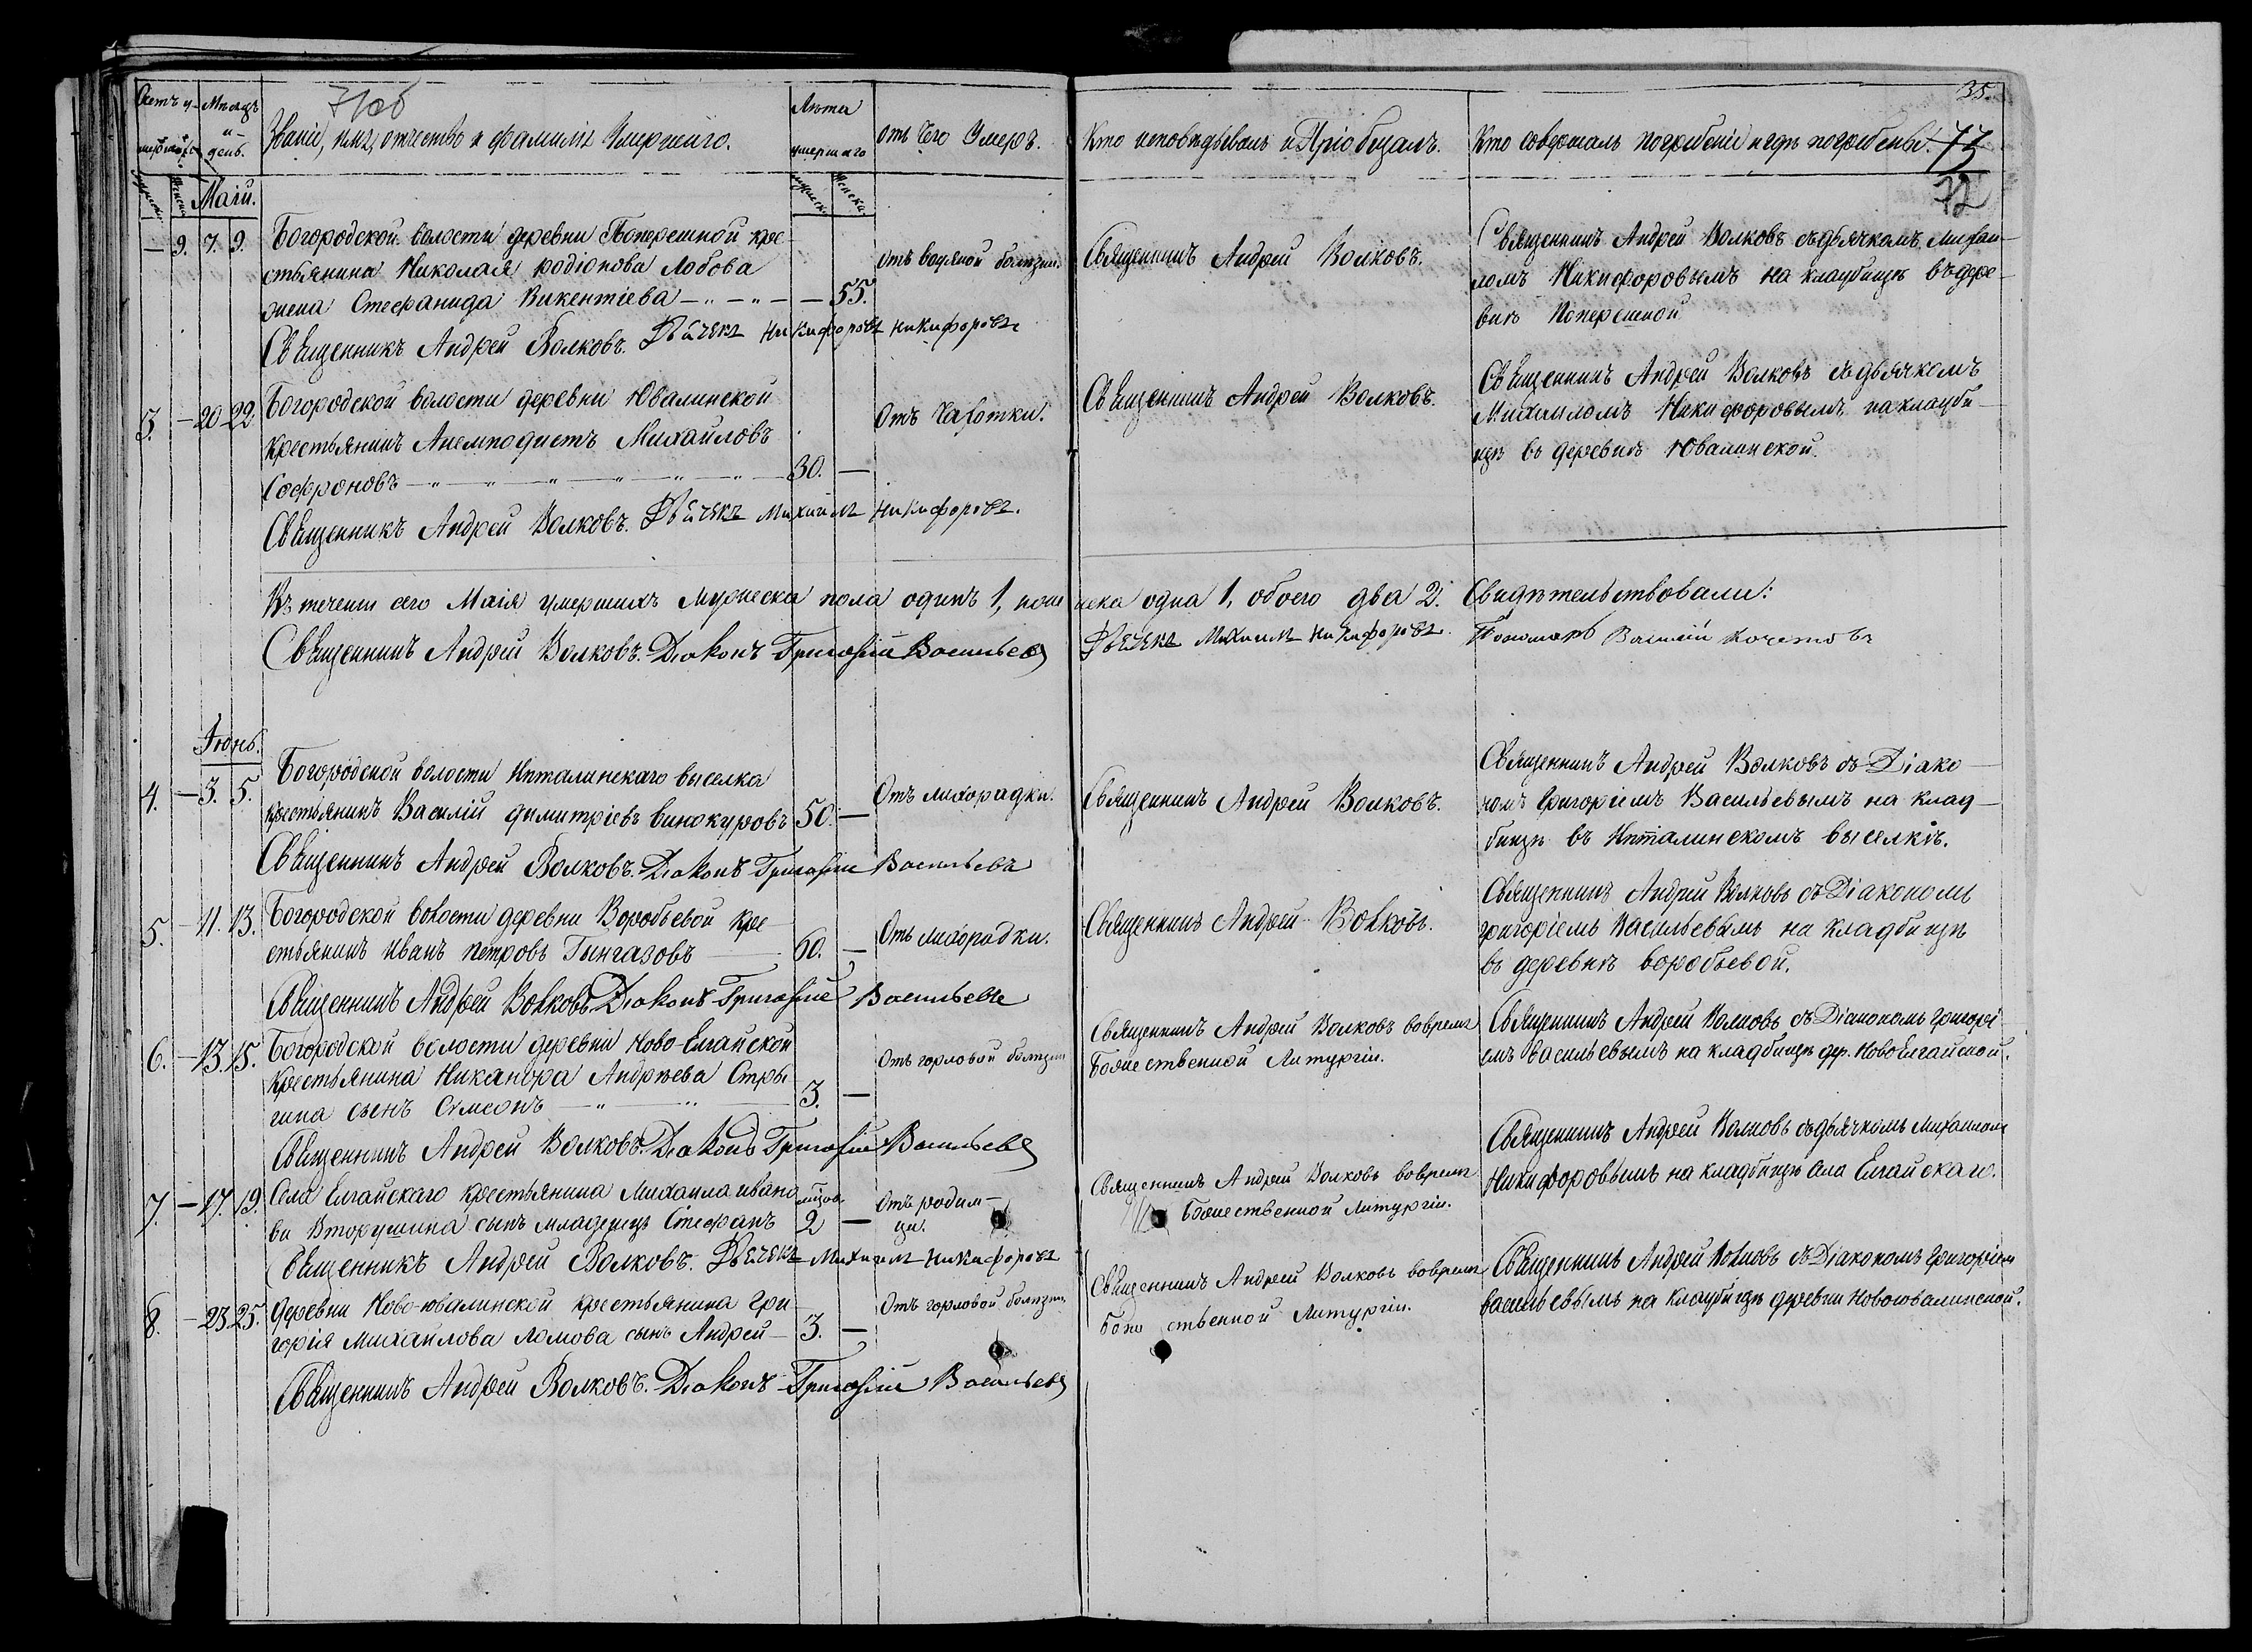 71об
35.
77
72
Счетъ умершихъ
Мѣсяцъ и день.
Званіе, имя, отчество и фамилія Умершаго.
Лѣта умершаго
отъ Чего Умеръ.
Кто исповѣдывалъ и Пріобщалъ.
Кто совершалъ погребеніе и гдѣ погребены.
Маій.
— 9. 7. 9.
Богородской волости деревни Поперешной кре-
стьянина Николая родіонова Лобова
жена Стефанида Викентіева — 55.
Священникъ Андрей Волковъ. Дьячекъ Никифоровъ Никифоровъ
отъ водяной болѣзни.
Священникъ Андрей Волковъ.
Священникъ Андрей Волковъ съ дьячкомъ Михаи-
ломъ Никифоровымъ на кладбищѣ въ дере-
внѣ Поперешной
3. — 20 22
Богородской волости деревни Ювалинской
крестьянинъ Анемподистъ Михайловъ
Софроновъ 30. —
Священникъ Андрей Волковъ. Дьячекъ Михаилъ Никифоровъ.
Отъ Чахотки.
Священникъ Андрей Волковъ.
Священникъ Андрей Волковъ съ дьячкомъ
Михаиломъ Никифоровымъ на кладби-
щѣ въ деревнѣ Ювалинской.
Въ теченіи сего Маія умершихъ мужеска пола одинъ 1, жен
ска одна 1, обоего два 2. Свидѣтельствовали:
Священникъ Андрей Волковъ. Діаконъ Григорій Васильевъ
Дьячекъ Михаилъ Никифоровъ. Пономарь Василій Кочетовъ
Іюнь.
4. — 3. 5.
Богородской волости Ипталинскаго выселка
крестьянинъ Василій димитріевъ винокуровъ 50. —
Священникъ Андрей Волковъ. Діаконъ Григорій Васильевъ
Отъ лихорадки.
Священникъ Андрей Волковъ.
Священникъ Андрей Волковъ съ Діако-
номъ Григоріемъ Васильевымъ на клад-
бищѣ въ Ипталинскомъ выселкѣ.
5. — 11. 13.
Богородской волости деревни Воробьевой кре-
стьянинъ иванъ петровъ Гынгазовъ 60. —
Священникъ Андрей Волковъ. Діаконъ Григорій Васильевъ
Отъ лихорадки.
Священникъ Андрей Волковъ.
Священникъ Андрей Волковъ съ Діакономъ
григоріемъ Васильевымъ на кладбищѣ
въ деревнѣ воробьевой.
6. — 13. 15.
Богородской волости деревни Ново-Елгайской
крестьянина Никанора Андрѣева Стры
гина сынъ Сѵмеонъ 3. —
Священникъ Андрей Волковъ. Діаконъ Григорій Васильевъ
Отъ горловой болѣзни
Священникъ Андрей Волковъ вовремя
Божественной Литургіи.
Священникъ Андрей Волковъ съ Діакономъ Григорі
емъ васильевымъ на кладбищѣ дер. Ново Елгайской.
7. — 17. 19.
Села Елгайскаго крестьянина Михаила ивано
ва Вторушина сынъ младенецъ Стефанъ 2 —
Священникъ Андрей Волковъ. Дьячекъ Михаилъ Никифоровъ
Отъ родим-
ца.
Священникъ Андрей Волковъ вовремя
Божественной Литургіи.
Священникъ Андрей Волковъ съ дьячкомъ Михаиломъ
Никифоровымъ на кладбищѣ села Елгайскаго.
8. — 23 25.
деревни Ново-ювалинской крестьянина гри
горія михайлова ломова сынъ Андрей 3. —
Священникъ Андрей Волковъ. Діаконъ Григорій Васильевъ
Отъ горловой болѣзни
Священникъ Андрей Волковъ вовремя
боже ственной Литургіи.
Священникъ Андрей Волковъ съ Діакономъ Григоріемъ
васильевымъ на кладбищѣ деревни новоювалинской.